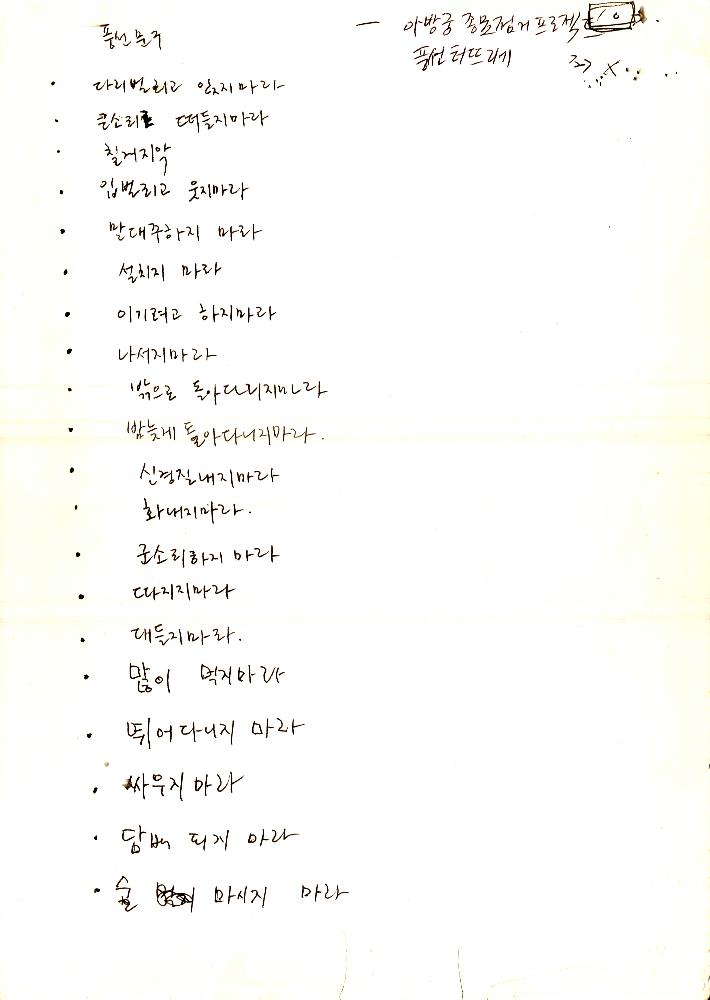 풍선문구
— 아방궁 종묘점거 프로젝트
풍선 터뜨리기
· 다리벌리고 앉지마라
· 큰소리로 떠들지마라
· 칠거지악
· 입벌리고 웃지마라
· 말대꾸하지 마라
· 설치지 마라
· 이기려고 하지마라
· 나서지마라
· 밖으로 돌아다니지마라
· 밤늦게 돌아다니지마라.
· 신경질내지마라
· 화내지마라.
· 군소리하지 마라
· 따지지마라
· 대들지마라.
· 많이 먹지마라
· 뛰어다니지 마라
· 싸우지 마라
· 담배 피지 마라
· 술 마시지 마라